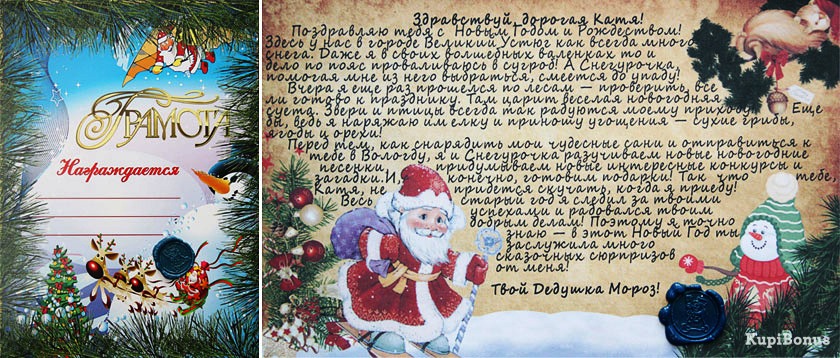 Грамота
Награждается
Здравствуй, дорогая Катя!
Поздравляю тебя с Новым Годом и Рождеством!
Здесь у нас в городе Великий Устюг как всегда много
снега. Даже я в своих волшебных валенках то и
дело по пояс проваливаюсь в сугроб! А Снегурочка,
помогая мне из него выбраться, смеется до упаду!
Вчера я еще раз прошелся по лесам — проверить, все
ли готово к празднику. Там царит веселая новогодняя
суета. Звери и птицы всегда так радуются моему приходу! Еще
бы, ведь я наряжаю им елку и приношу угощения — сухие грибы,
ягоды и орехи!
Перед тем, как снарядить мои чудесные сани и отправиться к
тебе в Вологду, я и Снегурочка разучиваем новые новогодние
песенки, придумываем новые интересные конкурсы и
загадки. И, конечно, готовим подарки! Так что тебе,
Катя, не придется скучать, когда я приеду!
Весь старый год я следил за твоими
успехами и радовался твоим
добрым делам! Поэтому я точно
знаю — в этот Новый Год ты
заслужила много
сказочных сюрпризов
от меня!
Твой Дедушка Мороз!
KupiBonus